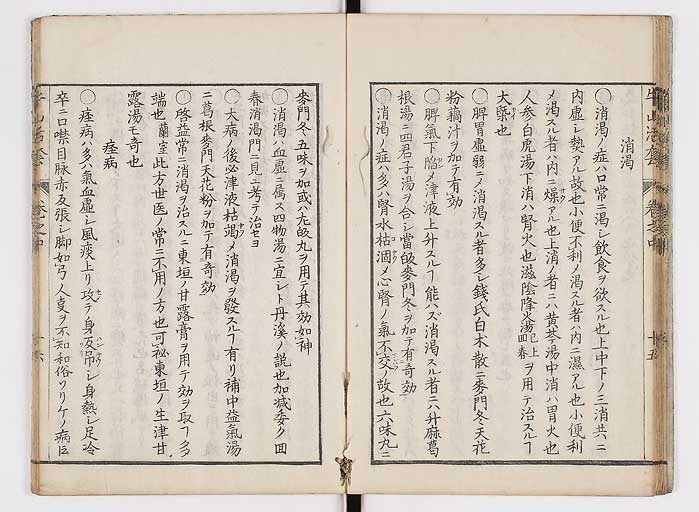 消渇
〇消渇ノ症ハ口常ニ渇レ飲食ヲ欲スル也上中下ノ三消共ニ
内虚レ熱アル故也小便不利ノ渇スル者ハ内ニ濕アル也小便利
メ渇スル者ハ内ニ燥アル也上消ノ者ニハ黄芩湯中消ハ胃火也
人参白虎湯下消ハ腎火也滋陰降火湯已上回春ヲ用テ治スルヿ
大藥也
〇脾胃虚弱ニノ消渇スル者多レ錢氏白朮散ニ麥門冬天花
粉藕汁ヲ加テ有効
〇脾氣下陷メ津液上升スルヿ能ハズ消渇スル者ニハ升麻葛
根湯ニ四君子湯ヲ合レ當皈麥門冬ヲ加テ有奇効
〇消渇ノ症ハ多ハ腎水枯涸メ心腎ノ氣不交ノ故也六味丸ニ
麥門冬五味ヲ加或ハ八味丸ヲ用テ其効如神
〇消渇ハ血虚ニ属ス四物湯ニ宜レト丹溪ノ説也加減委ク回
春消渇門ニ見ユ考テ治セヨ
〇大病ノ後必津液枯竭メ消渇ヲ發スルヿ有リ補中益氣湯
ニ葛根麥門天花粉ヲ加テ有奇効
〇啓益常ニ消渇ヲ治スルニ東垣ノ甘露膏ヲ用テ効ヲ取ルヿ多
端也蘭室此方世医ノ常ニ不用ノ方也可祕東垣ノ生津甘
露湯モ奇也
痓病
〇痓病ハ多ハ氣血虚レ風痰上リ攻テ身反吊レ身熱レ足冷
卒ニ口噤目脉赤反張レ脚如弓人叓ヲ不知和俗ソリケノ病ト云